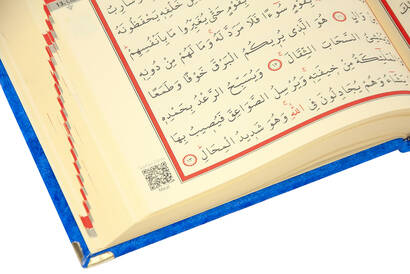 خَلْفِهِ يَحْفَظُونَهُ
بِقَوْمٍ حَتّٰى يُغَيِّرُوا مَا بِاَنْفُسِهِمْ
بِقَوْمٍ سُوءًا فَلَا مَرَدَّ لَهُ وَمَا لَهُمْ مِنْ دُونِهِ
وَالٍ ١١ هُوَ الَّذِي يُرِيكُمُ الْبَرْقَ خَوْفًا وَطَمَعًا
السَّحَابَ الثِّقَالَ ١٢ وَيُسَبِّحُ الرَّعْدُ بِحَمْدِهِ
مِنْ خِيفَتِهِ وَيُرْسِلُ الصَّوَاعِقَ فَيُصِيبُ بِهَا
يَشَاءُ وَهُمْ يُجَادِلُونَ فِي اللّٰهِ وَهُوَ شَدِيدُ الْمِحَالِ ١٣